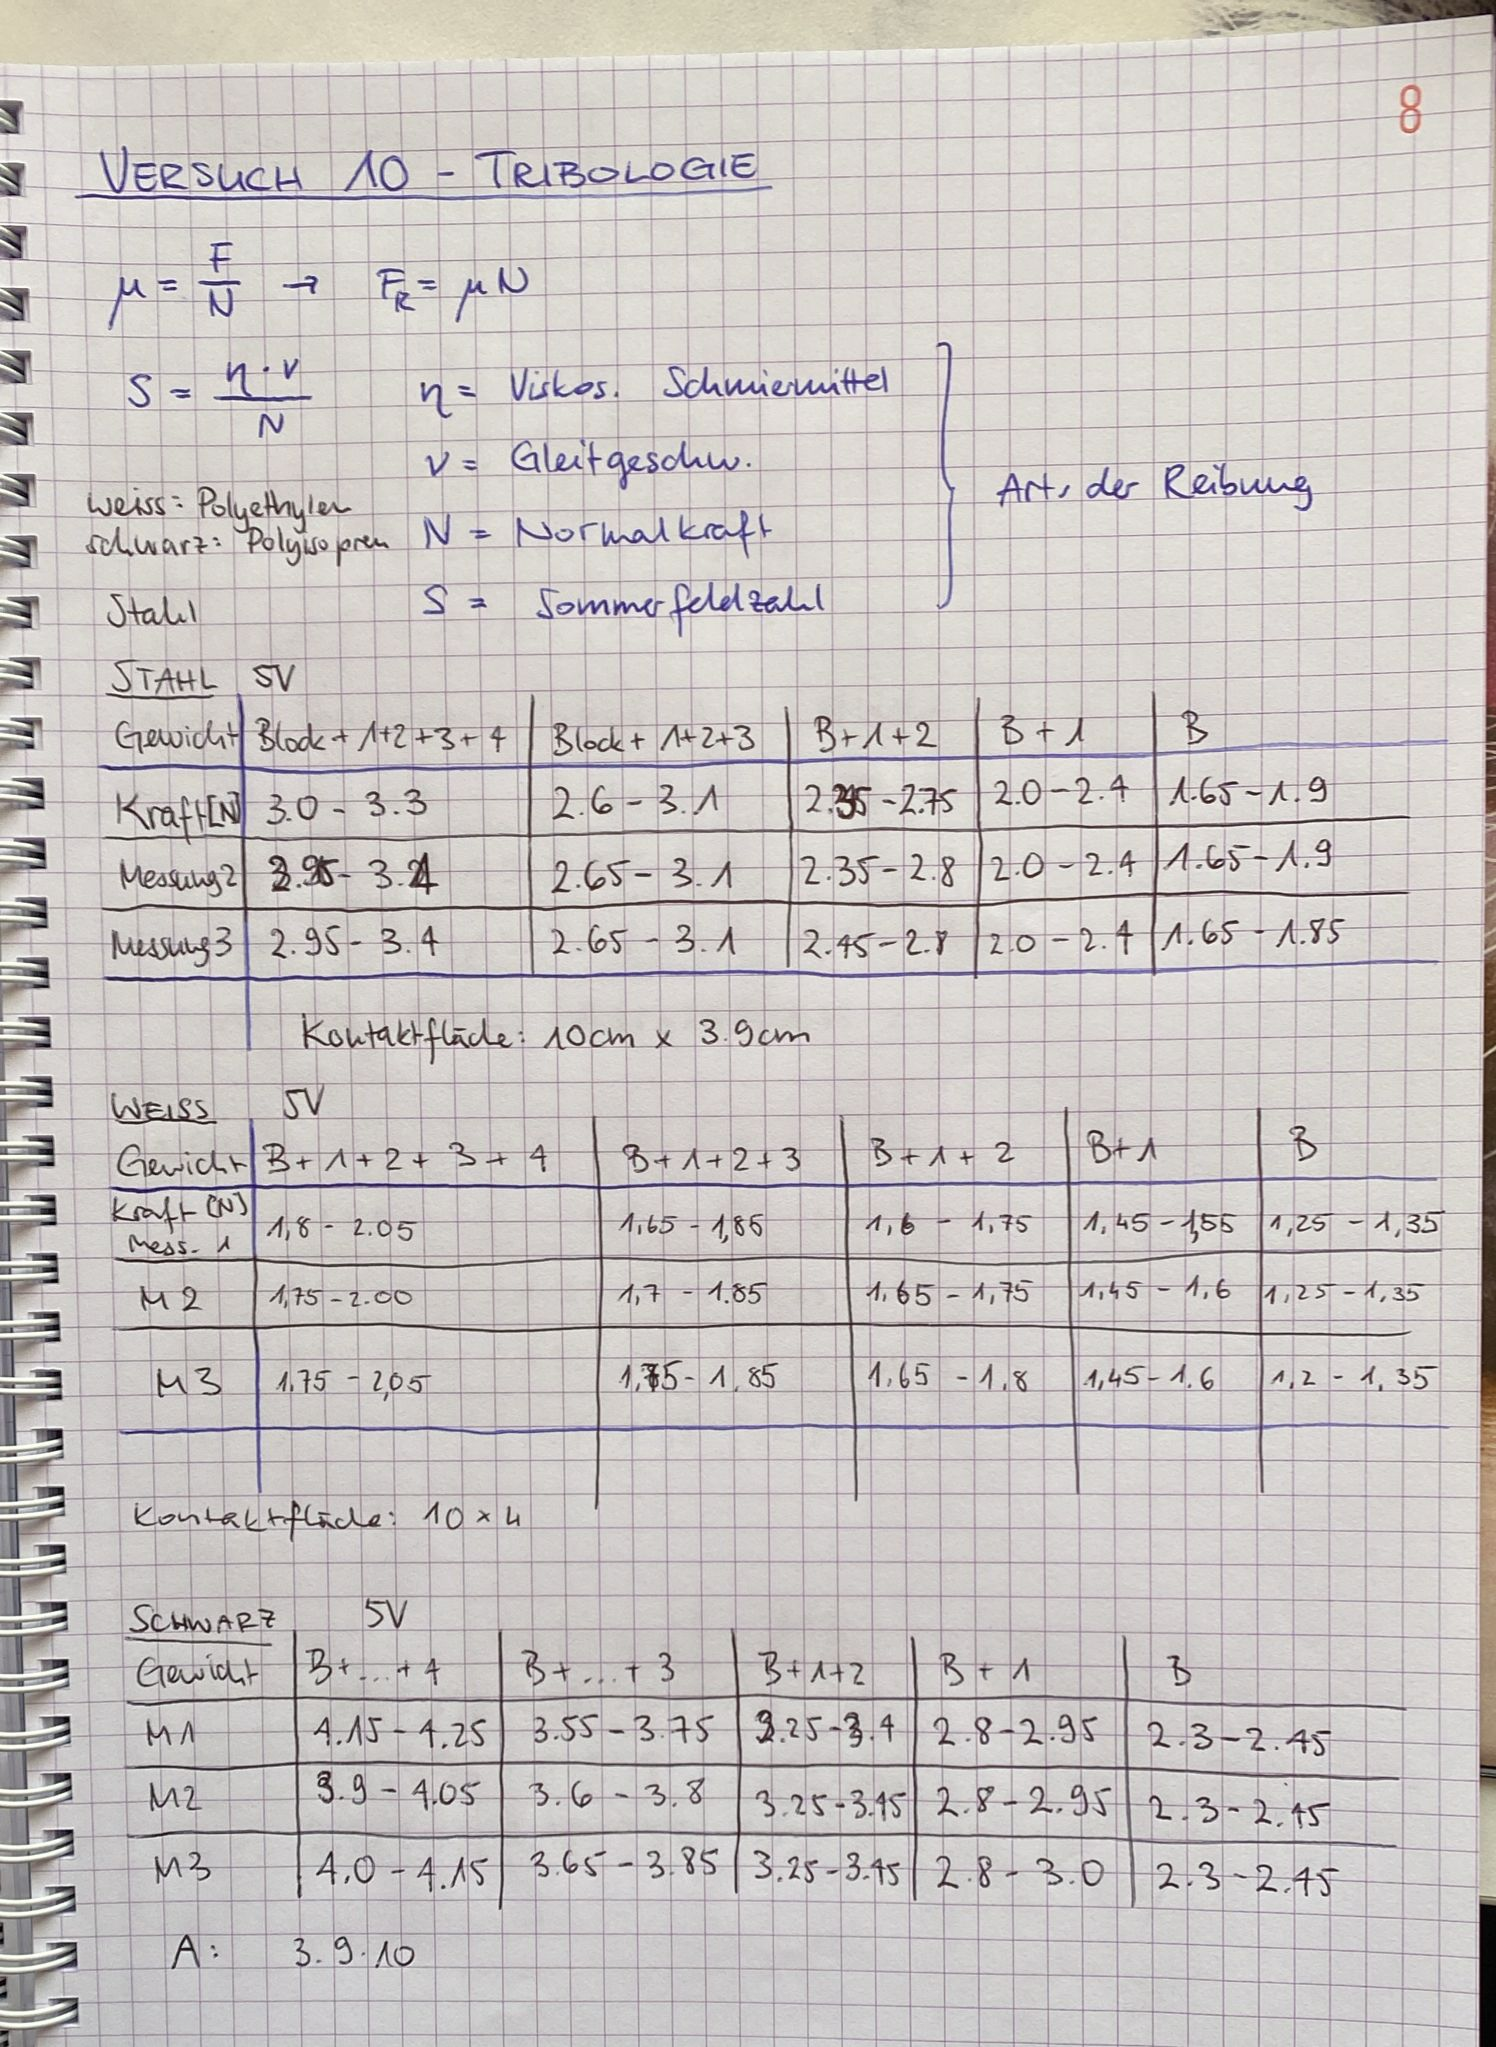 8
VERSUCH 10 - TRIBOLOGIE
μ = F/N → F_R = μN
S = η·v/N
η = Viskos. Schmiermittel
v = Gleitgeschw.
N = Normalkraft
S = Sommerfeldzahl
Art, der Reibung
weiss: Polyethylen
schwarz: Polyisopren
Stahl
STAHL 5V
Gewicht Block + 1+2+3+4 Block + 1+2+3 B+1+2 B+1 B
Kraft[N] 3.0 - 3.3 2.6 - 3.1 - 2.75 2.0 - 2.4 1.65 - 1.9
Messung2 2.65 - 3.1 2.35 - 2.8 2.0 - 2.4 1.65 - 1.9
Messung3 2.95 - 3.4 2.65 - 3.1 2.45 - 2.8 2.0 - 2.4 1.65 - 1.85
Kontaktfläche: 10cm x 3.9cm
WEISS 5V
Gewicht B+1+2+3+4 B+1+2+3 B+1+2 B+1 B
Kraft [N] Mess. 1 1,8 - 2.05 1,65 - 1,85 1,6 - 1,75 1,45 - 1,55 1,25 - 1,35
M2 1,75 - 2.00 1,7 - 1.85 1,65 - 1,75 1,45 - 1,6 1,25 - 1,35
M3 1.75 - 2,05 - 1.85 1.65 - 1.8 1,45 - 1.6 1,2 - 1,35
Kontaktfläche: 10 x 4
SCHWARZ 5V
Gewicht B+...+4 B+...+3 B+1+2 B+1 B
M1 4.15 - 4.25 3.55 - 3.75 3.25 - 3.4 2.8 - 2.95 2.3 - 2.45
M2 3.9 - 4.05 3.6 - 3.8 3.25 - 3.45 2.8 - 2.95 2.3 - 2.45
M3 4.0 - 4.15 3.65 - 3.85 3.25 - 3.45 2.8 - 3.0 2.3 - 2.45
A: 3.9·10